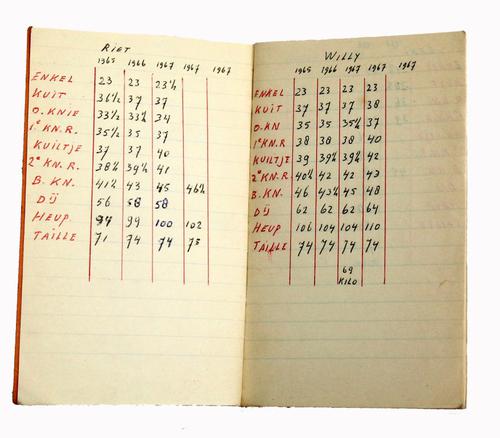 RIET
1965 1966 1967 1967 1967
ENKEL 23 23 23½
KUIT 36½ 37 37
O.KNIE 33½ 33¾ 34
1e KN.R. 35½ 35 37
KUILTJE 37 37 40
2e KN.R. 38½ 39½ 41
B.KN. 41½ 43 45 46½
DIJ 56 58 58
HEUP 97 99 100 102
TAILLE 71 74 74 75
WILLY
1965 1966 1967 1967 1967
ENKEL 23 23 23 23
KUIT 37 37 37 38
O.KN 35 35 35½ 37
1e KN.R 38 38 38 40
KUILTJE 39 39½ 39½ 42
2e KN.R. 40½ 42 42 43
B.KN. 46 43½ 45 48
DIJ 62 62 62 64
HEUP 106 104 104 110
TAILLE 74 74 74 74
69
KILO